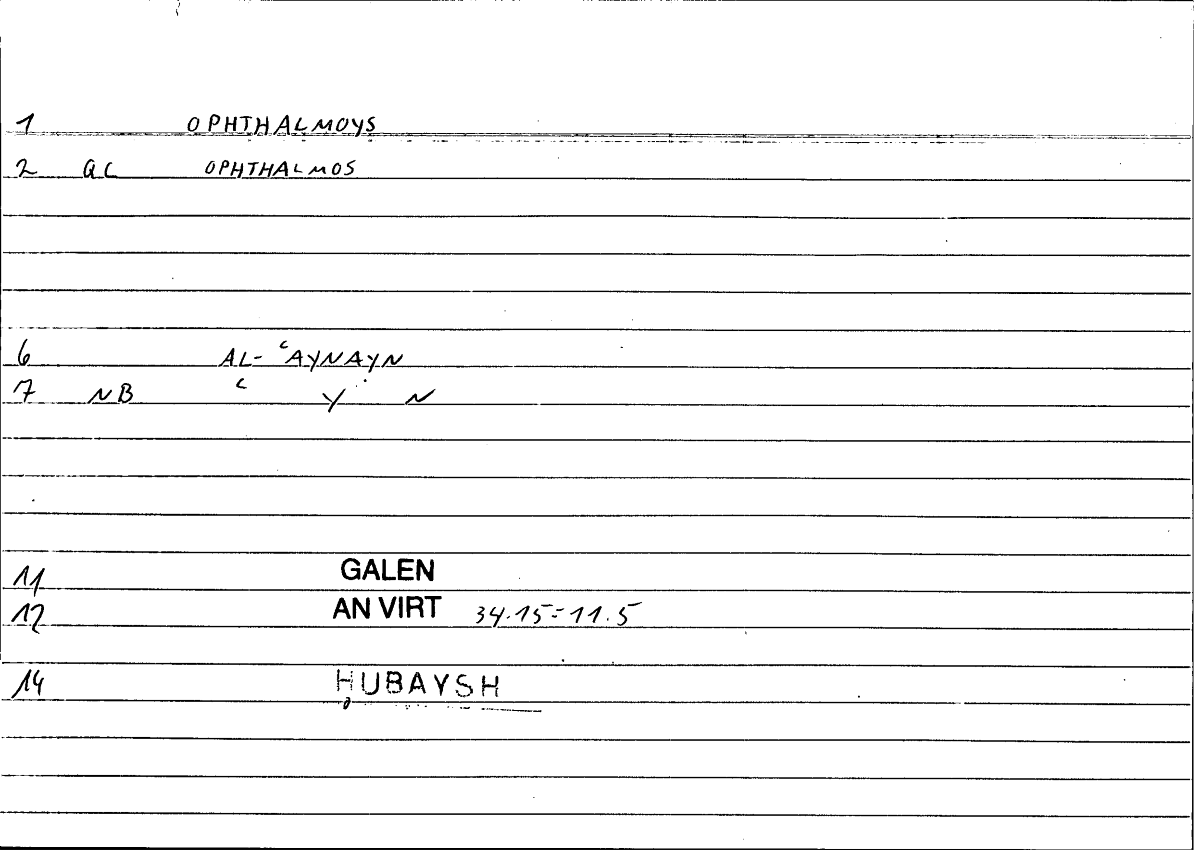 1 OPHTHALMOYS
2 QC OPHTHALMOS
6 AL- ʿAYNAYN
7 NB ʿ Y N
11 GALEN
12 AN VIRT 34.15=11.5
14 ḤUBAYSH